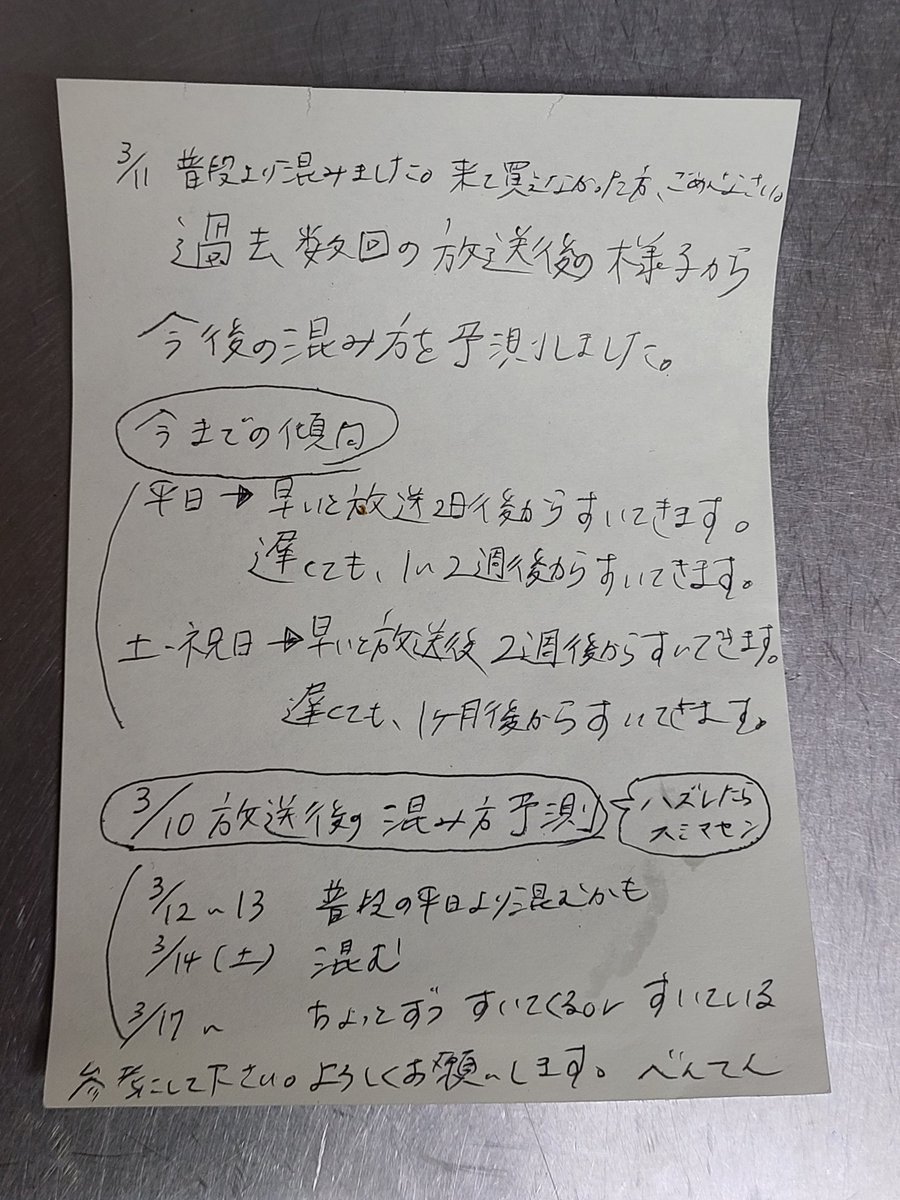 3/11 普段より混みました。来て買えなかった方、ごめんなさい。
過去数回の放送後の様子から
今後の混み方を予測しました。
今までの傾向
平日→早いと放送2日後からすいてきます。
遅くても、1〜2週後からすいてきます。
土・祝日→早いと放送後2週後からすいてきます。
遅くても、1ヶ月後からすいてきます。
3/10放送後の混み方予測
ハズレたら
スミマセン
3/12〜13 普段の平日より混むかも
3/14(土) 混む
3/17〜 ちょっとずつすいてくるorすいている
参考にして下さい。よろしくお願いします。べんてん